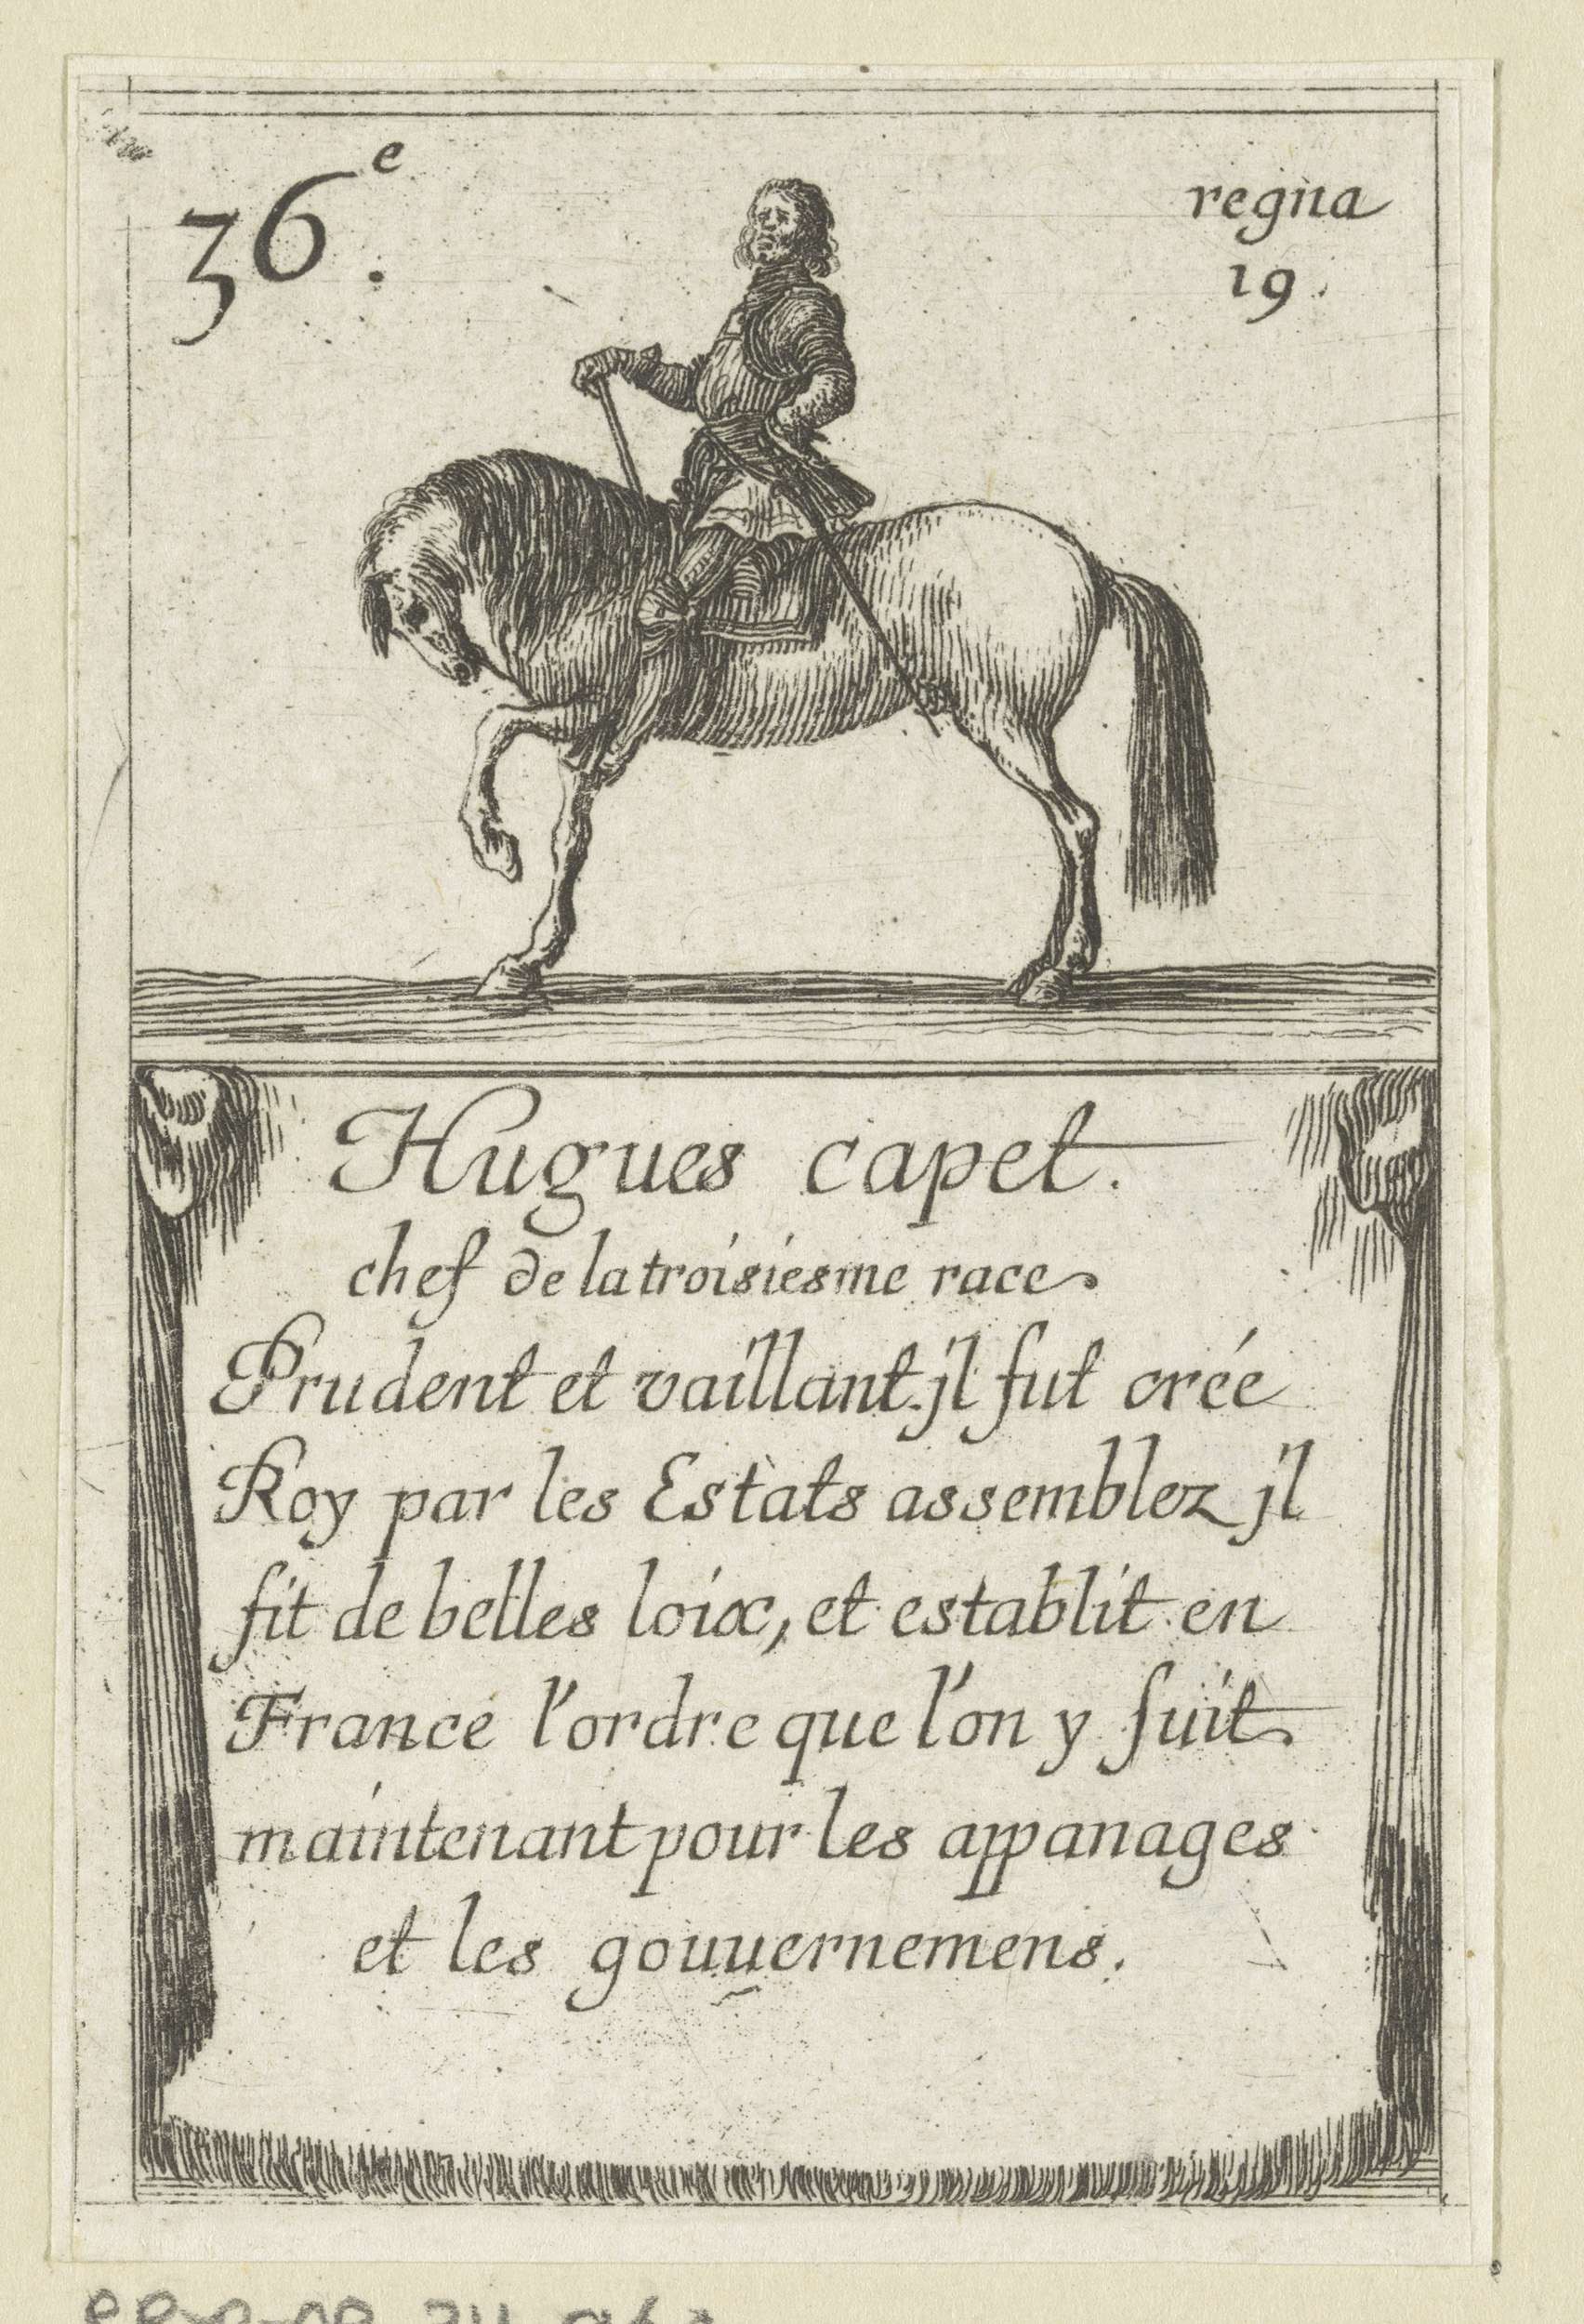 36.e
regna
19.
Hugues capet.
chef de la troisiesme race
Prudent et vaillant. jl fut crée
Roy par les Estats assemblez jl
fit de belles loix, et establit en
France l'ordre que l'on y suit
maintenant pour les appanages
et les gouuernemens.